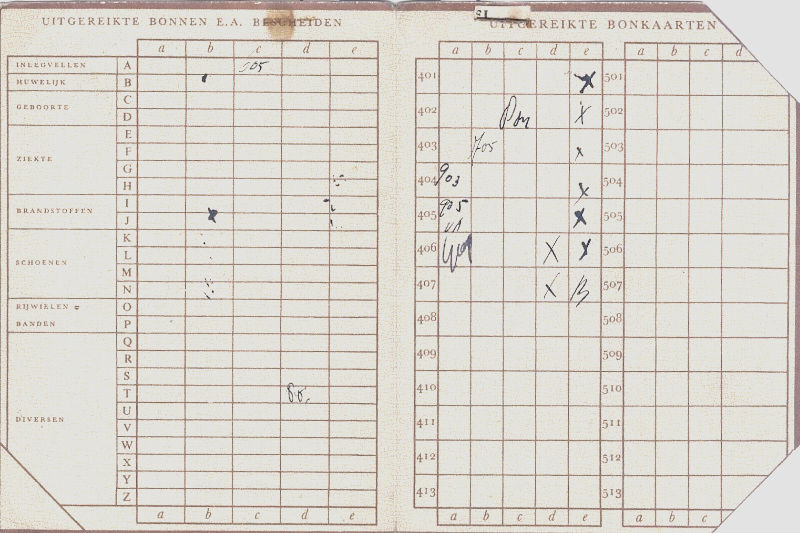 UITGEREIKTE BONNEN E.A. BESCHEIDEN
a b c d e
INLEGVELLEN A 505
HUWELIJK B
GEBOORTE C
D
E
ZIEKTE F
G
H
I
BRANDSTOFFEN J
K
SCHOENEN L
M
N
RIJWIELEN O
BANDEN P
Q
R
S
T
U
DIVERSEN V
W
X
Y
Z
a b c d e
UITGEREIKTE BONKAARTEN
a b c d e a b c d
401 X 501
402 X 502
403 705 x 503
404 903 x 504
405 905 X 505
406 X X 506
407 X 507
408 508
409 509
410 510
411 511
412 512
413 513
a b c d e a b c